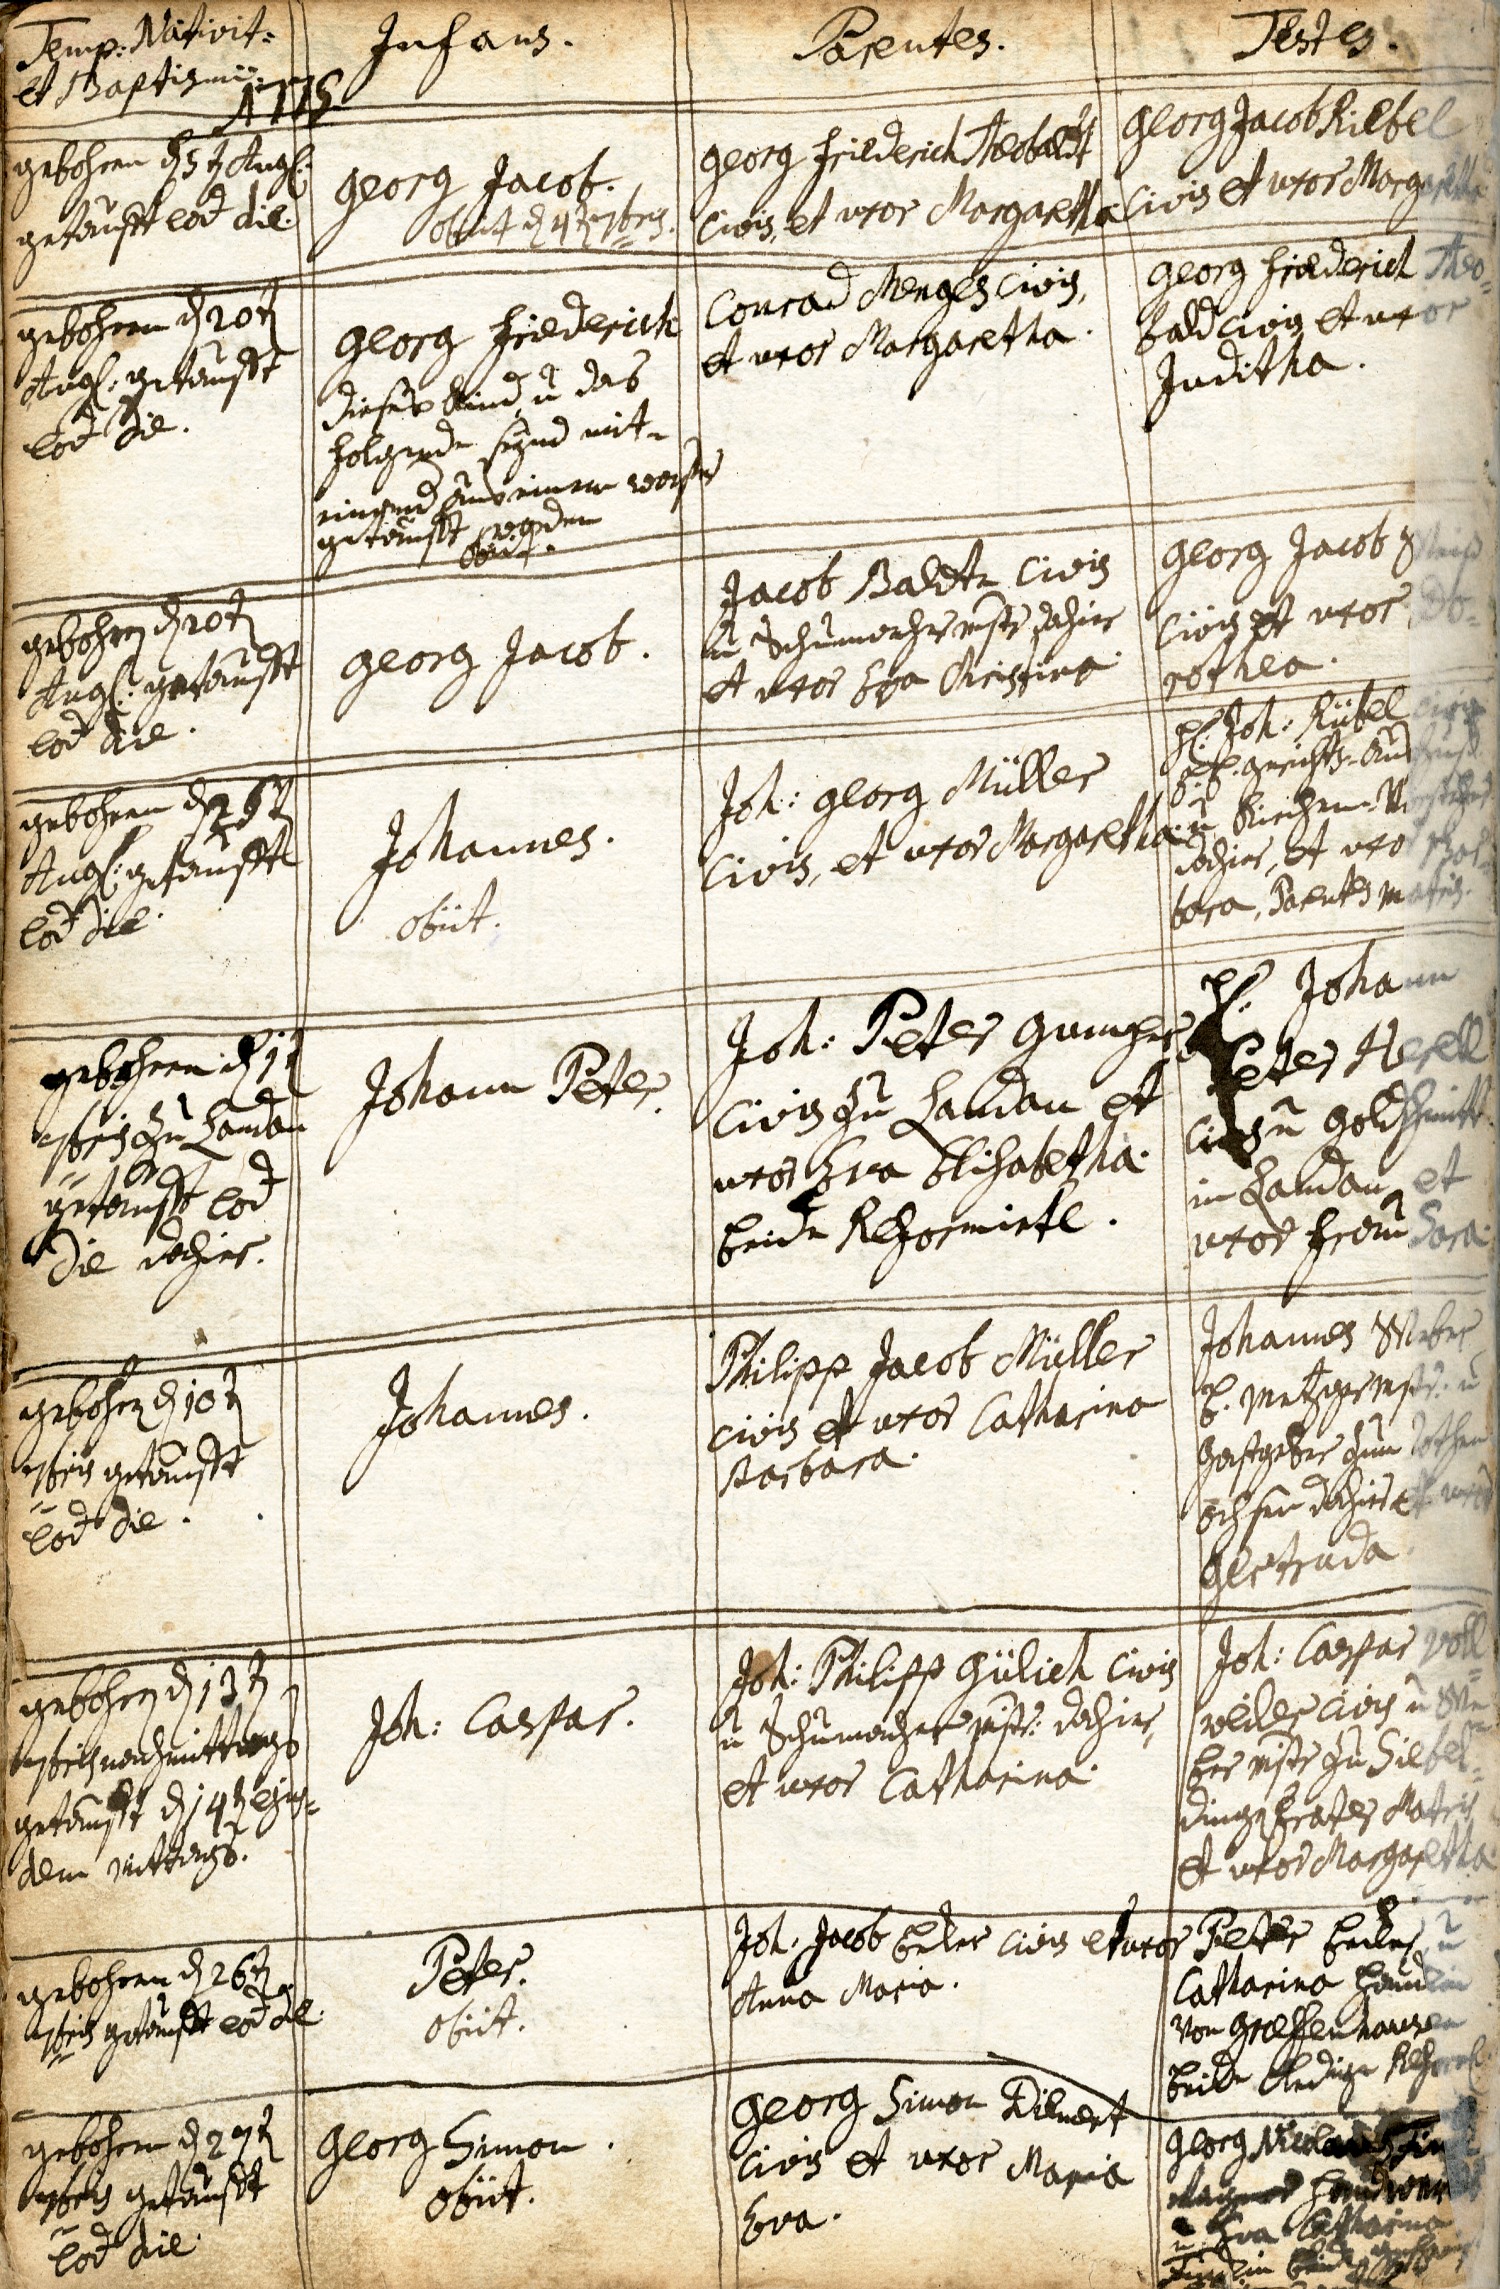 Temp: Nativit:
et Baptismi:
Infans.
Parentes.
Testes.
gebohren d 5t Augs:
getaufft eod die.
Georg Jacob.
obiit d 4t 7bris.
Georg Friederich Theobaldt
Civis, et uxor Margaretha
Georg Jacob Riebel
Civis et uxor Margaretha
gebohren d 20t
Augs: getaufft
eod die.
Georg Friederich
dieses Kind u das
folgende seynd mit-
einand aus einem wasser
getaufft worden
obiit.
Conrad Menges Civis,
et uxor Margaretha.
Georg Friederich Theo-
bald Civis et uxor
Juditha.
gebohren d 20t
Augs: getaufft
eod die.
Georg Jacob.
Jacob Baldte Civis
u Schumacher mstr dahier
et uxor Eva Christina.
Georg Jacob
Civis et uxor Do-
rothea.
gebohren d 25t
Augs: getaufft
eod die.
Johannes.
obiit.
Joh: Georg Müller
Civis, et uxor Margaretha.
H. Joh: Rübel Civis
gerichts-
u Kirchen-
dahier, et uxor Bar-
bara, Parentes matris.
gebohren d 1t
7bris zu Landau
getaufft eod
die dahier.
Johann Peter.
Joh: Peter
Civis zu Landau et
uxor Eva Elisabetha.
beide Reformirte.
H. Johann
Peter
Civis u Goldschmitt
in Landau, et
uxor Frau Sara.
gebohren d 10t
7bris getaufft
eod die.
Johannes.
Philipp Jacob Müller
Civis et uxor Catharina
Barbara.
Johannes Weber,
B. Metzger mstr. u
Gastgeber zum rothen
Ochsen dahier et uxor
Gertruda.
gebohren d 13t
7bris nachmittags
getaufft d 14t ejus-
dem mittags.
Joh: Caspar.
Joh: Philipp Gülich Civis
u Schumacher mstr: dahier,
et uxor Catharina.
Joh: Caspar Voll-
weiler Civis u We-
ber mstr zu Siebel-
dingen Frater Matris
et uxor Margaretha
gebohren d 26t
7bris getaufft eod die.
Peter.
obiit.
Joh: Jacob Becker Civis et uxor
Anna Maria.
Peter Becker u
Catharina
von Graeffenhausen
beide ledige Reform.
gebohren d 27t
7bris getaufft
eod die.
Georg Simon.
obiit.
Georg Simon
Civis et uxor Maria
Eva.
Georg Nicolaus
u Eva Catharina